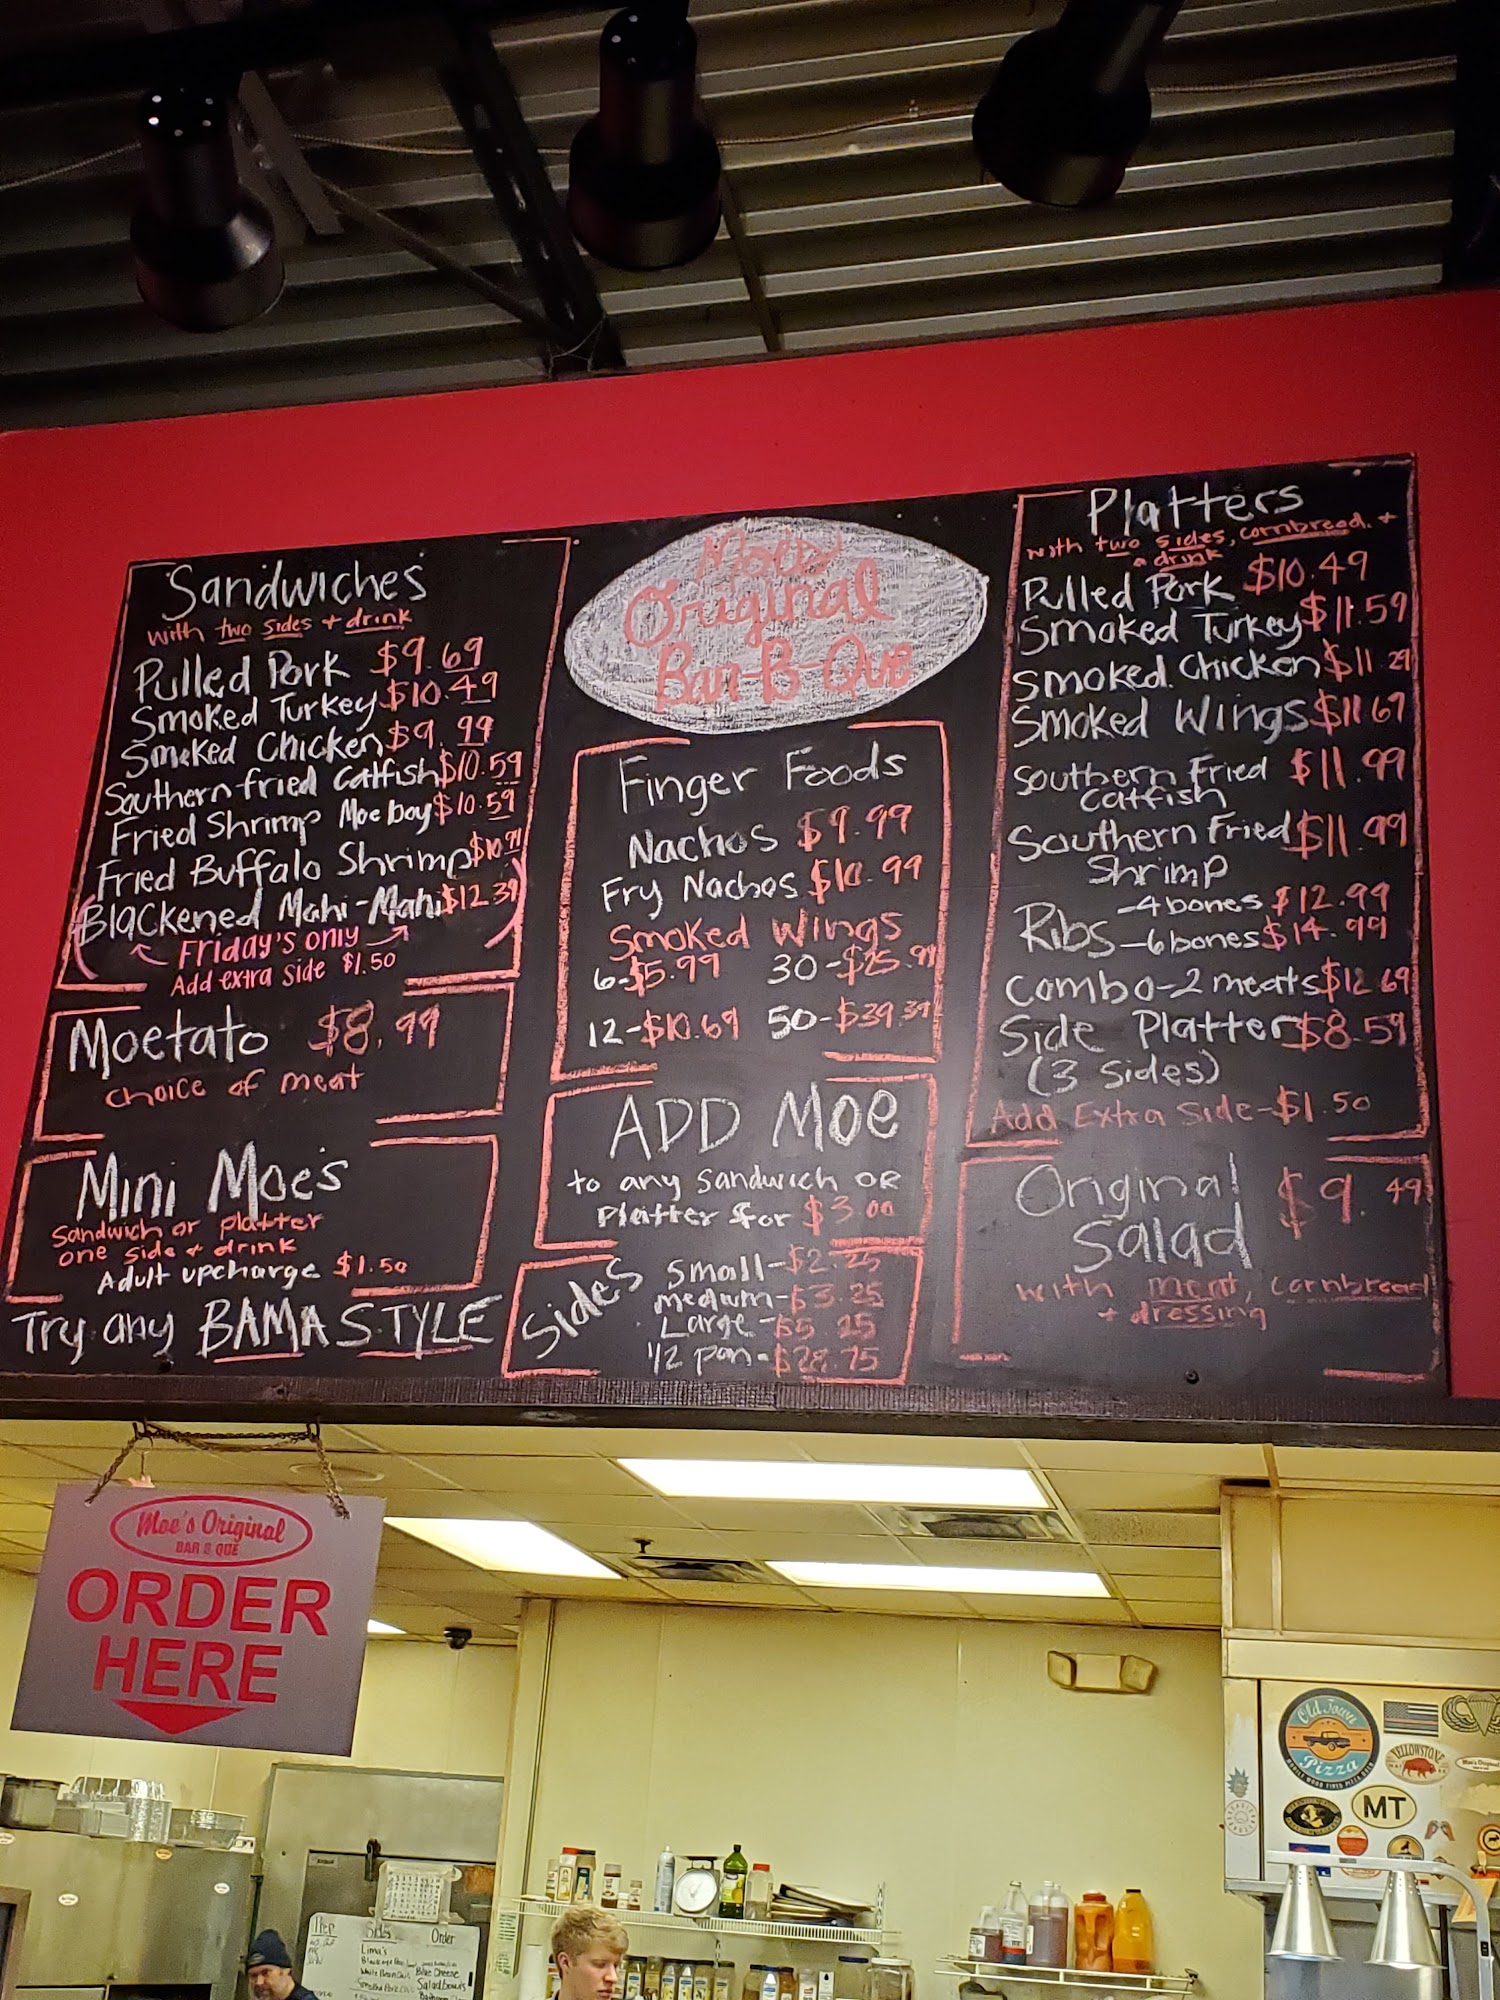 Sandwiches
with two sides + drink
Pulled Pork $9.69
Smoked Turkey $10.49
Smoked Chicken $9.99
Southern fried Catfish $10.59
Fried Shrimp Moe boy $10.59
Fried Buffalo Shrimp $10.99
Blackened Mahi-Mahi $12.39
Friday's only
Add extra side $1.50
Moetato $8.99
choice of meat
Mini Moe's
Sandwich or platter
one side + drink
Adult upcharge $1.50
Try any BAMA STYLE
Moe's
Original
Bar-B-Que
Finger Foods
Nachos $9.99
Fry Nachos $10.99
Smoked Wings
6-$5.99 30-$25.99
12-$10.69 50-$39.39
ADD MOE
to any sandwich OR
Platter for $3.00
Sides
Small-$2.25
medium-$3.25
Large-$5.25
1/2 pan-
Platters
with two sides, cornbread, +
a drink
Pulled Pork $10.49
Smoked Turkey $11.59
Smoked Chicken $11.29
Smoked Wings $11.69
Southern Fried $11.99
Catfish
Southern Fried $11.99
Shrimp
Ribs -4 bones $12.99
-6 bones $14.99
Combo-2 meats $12.69
Side Platter $8.59
(3 sides)
Add Extra Side-$1.50
Original $9.49
Salad
with meat, cornbread
+ dressing
Moe's Original
BAR B QUE
ORDER
HERE
Old Town
Pizza
YELLOWSTONE
MT
Prep Sides Order
Lima's
Blue Cheese